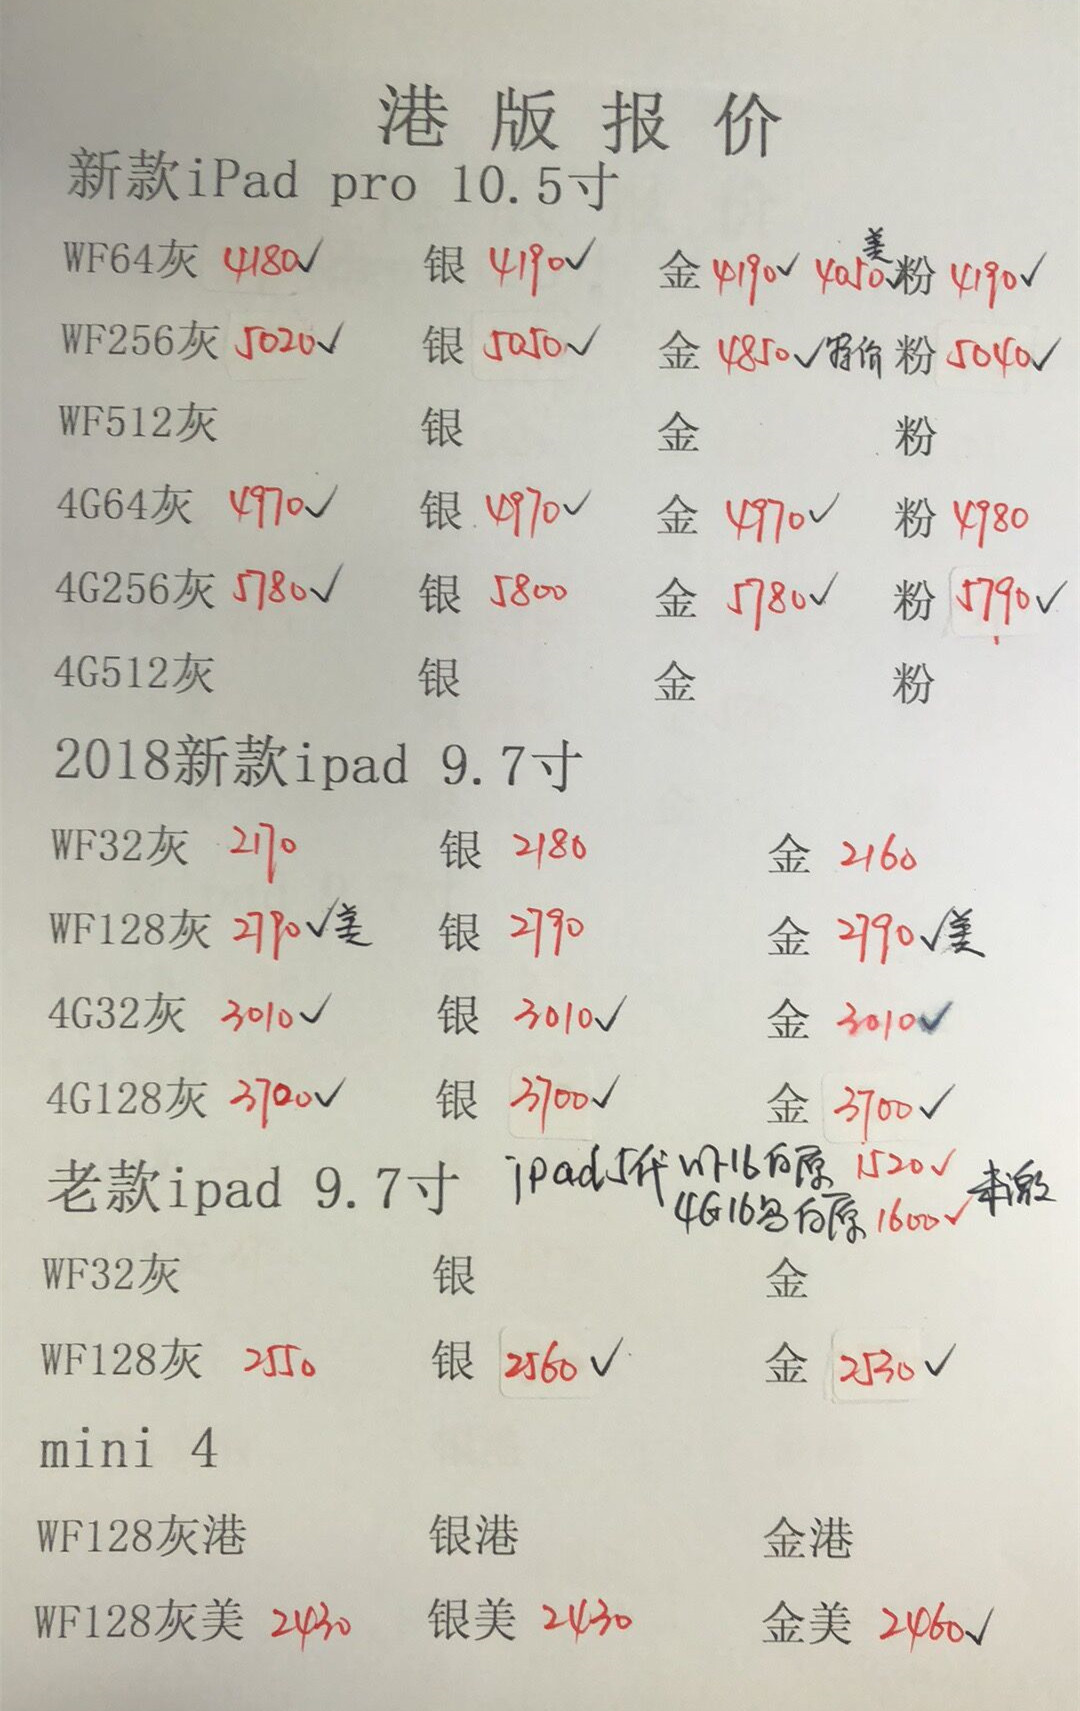 港版报价
新款iPad pro 10.5寸
WF64灰 4180✓ 银 4190✓ 金 4190✓ 4050✓美 粉 4190✓
WF256灰 5020✓ 银 5050✓ 金 4850✓特价 粉 5040✓
WF512灰 银 金 粉
4G64灰 4970✓ 银 4970✓ 金 4970✓ 粉 4980
4G256灰 5780✓ 银 5800 金 5780✓ 粉 5790✓
4G512灰 银 金 粉
2018新款ipad 9.7寸
WF32灰 2170 银 2180 金 2160
WF128灰 2790✓美 银 2790 金 2790✓美
4G32灰 3010✓ 银 3010✓ 金 3010✓
4G128灰 3700✓ 银 3700✓ 金 3700✓
老款ipad 9.7寸 ipad5代 WF16白原 1520✓ 未激
4G16 白原 1600✓
WF32灰 银 金
WF128灰 2550 银 2560✓ 金 2530✓
mini 4
WF128灰港 银港 金港
WF128灰美 2430 银美 2430 金美 2460✓